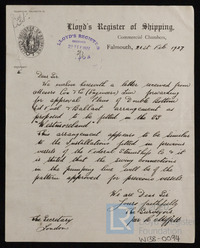 Lloyd's Register of Shipping,
Commercial Chambers,
Falmouth, 21st Feb 1907
LLOYD'S REGISTER
Dear Sir
We enclose herewith a letter received from
Messrs Cox & Co (Engineers) Ltd forwarding
for approval Plans of Double Bottom
Oil Fuel & Ballast arrangement as
proposed to be fitted in the SS
This arrangement appears to be similar
to the Installations fitted in previous
vessels of the Federal Steamship Co and
is stated that the
in the pumping line will be of the
pattern approved for previous vessels
We are Dear Sir
Yours faithfully
The Surveyors
per
The Secretary
London
W138-0094